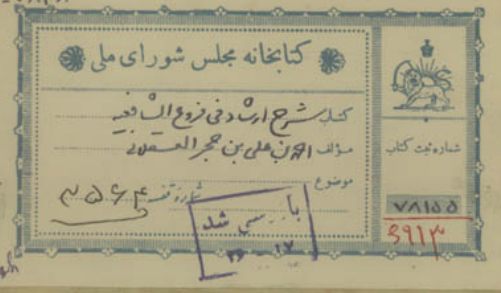 کتابخانه مجلس شورای ملی
کتاب شرح ارشاد فی فروع الشافعیه
مؤلف احمد بن علی بن حجر العسقلانی
موضوع
شماره قفسه ۳۵۶۴
بازرسی شد
۳۶ - ۱۷
شماره ثبت کتاب
۷۸۱۵۵